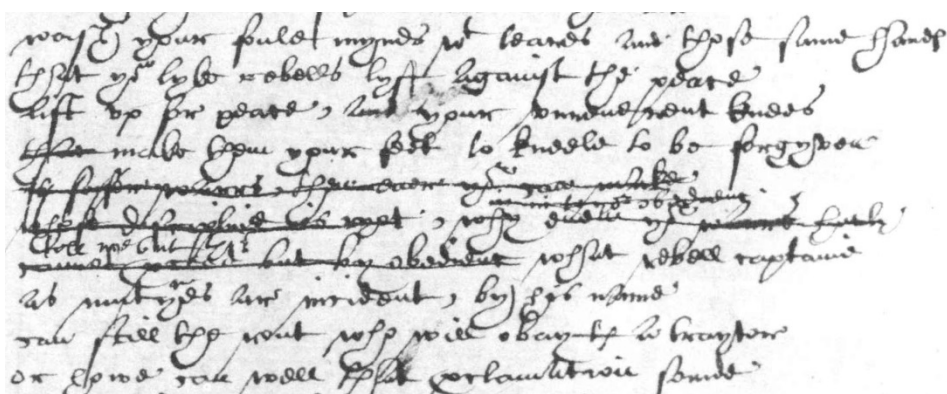 wash your foule mynds wt teares and those same hands
that yo lyke rebells lyft against the peace
lift vp for peace, and your vnreuerent knees
that make them your feet to kneele to be forgyven
is safer warrs, then euer yo can make
in in to yor obedienc
whose discipline is ryot, why euen yor warrs hurly
tell me but this
cannot proceed but by obedienc what rebell captaine
as mutynes ar incident, by his name
can still the rout who will obay th a traytor
or howe can well that proclamation sounde